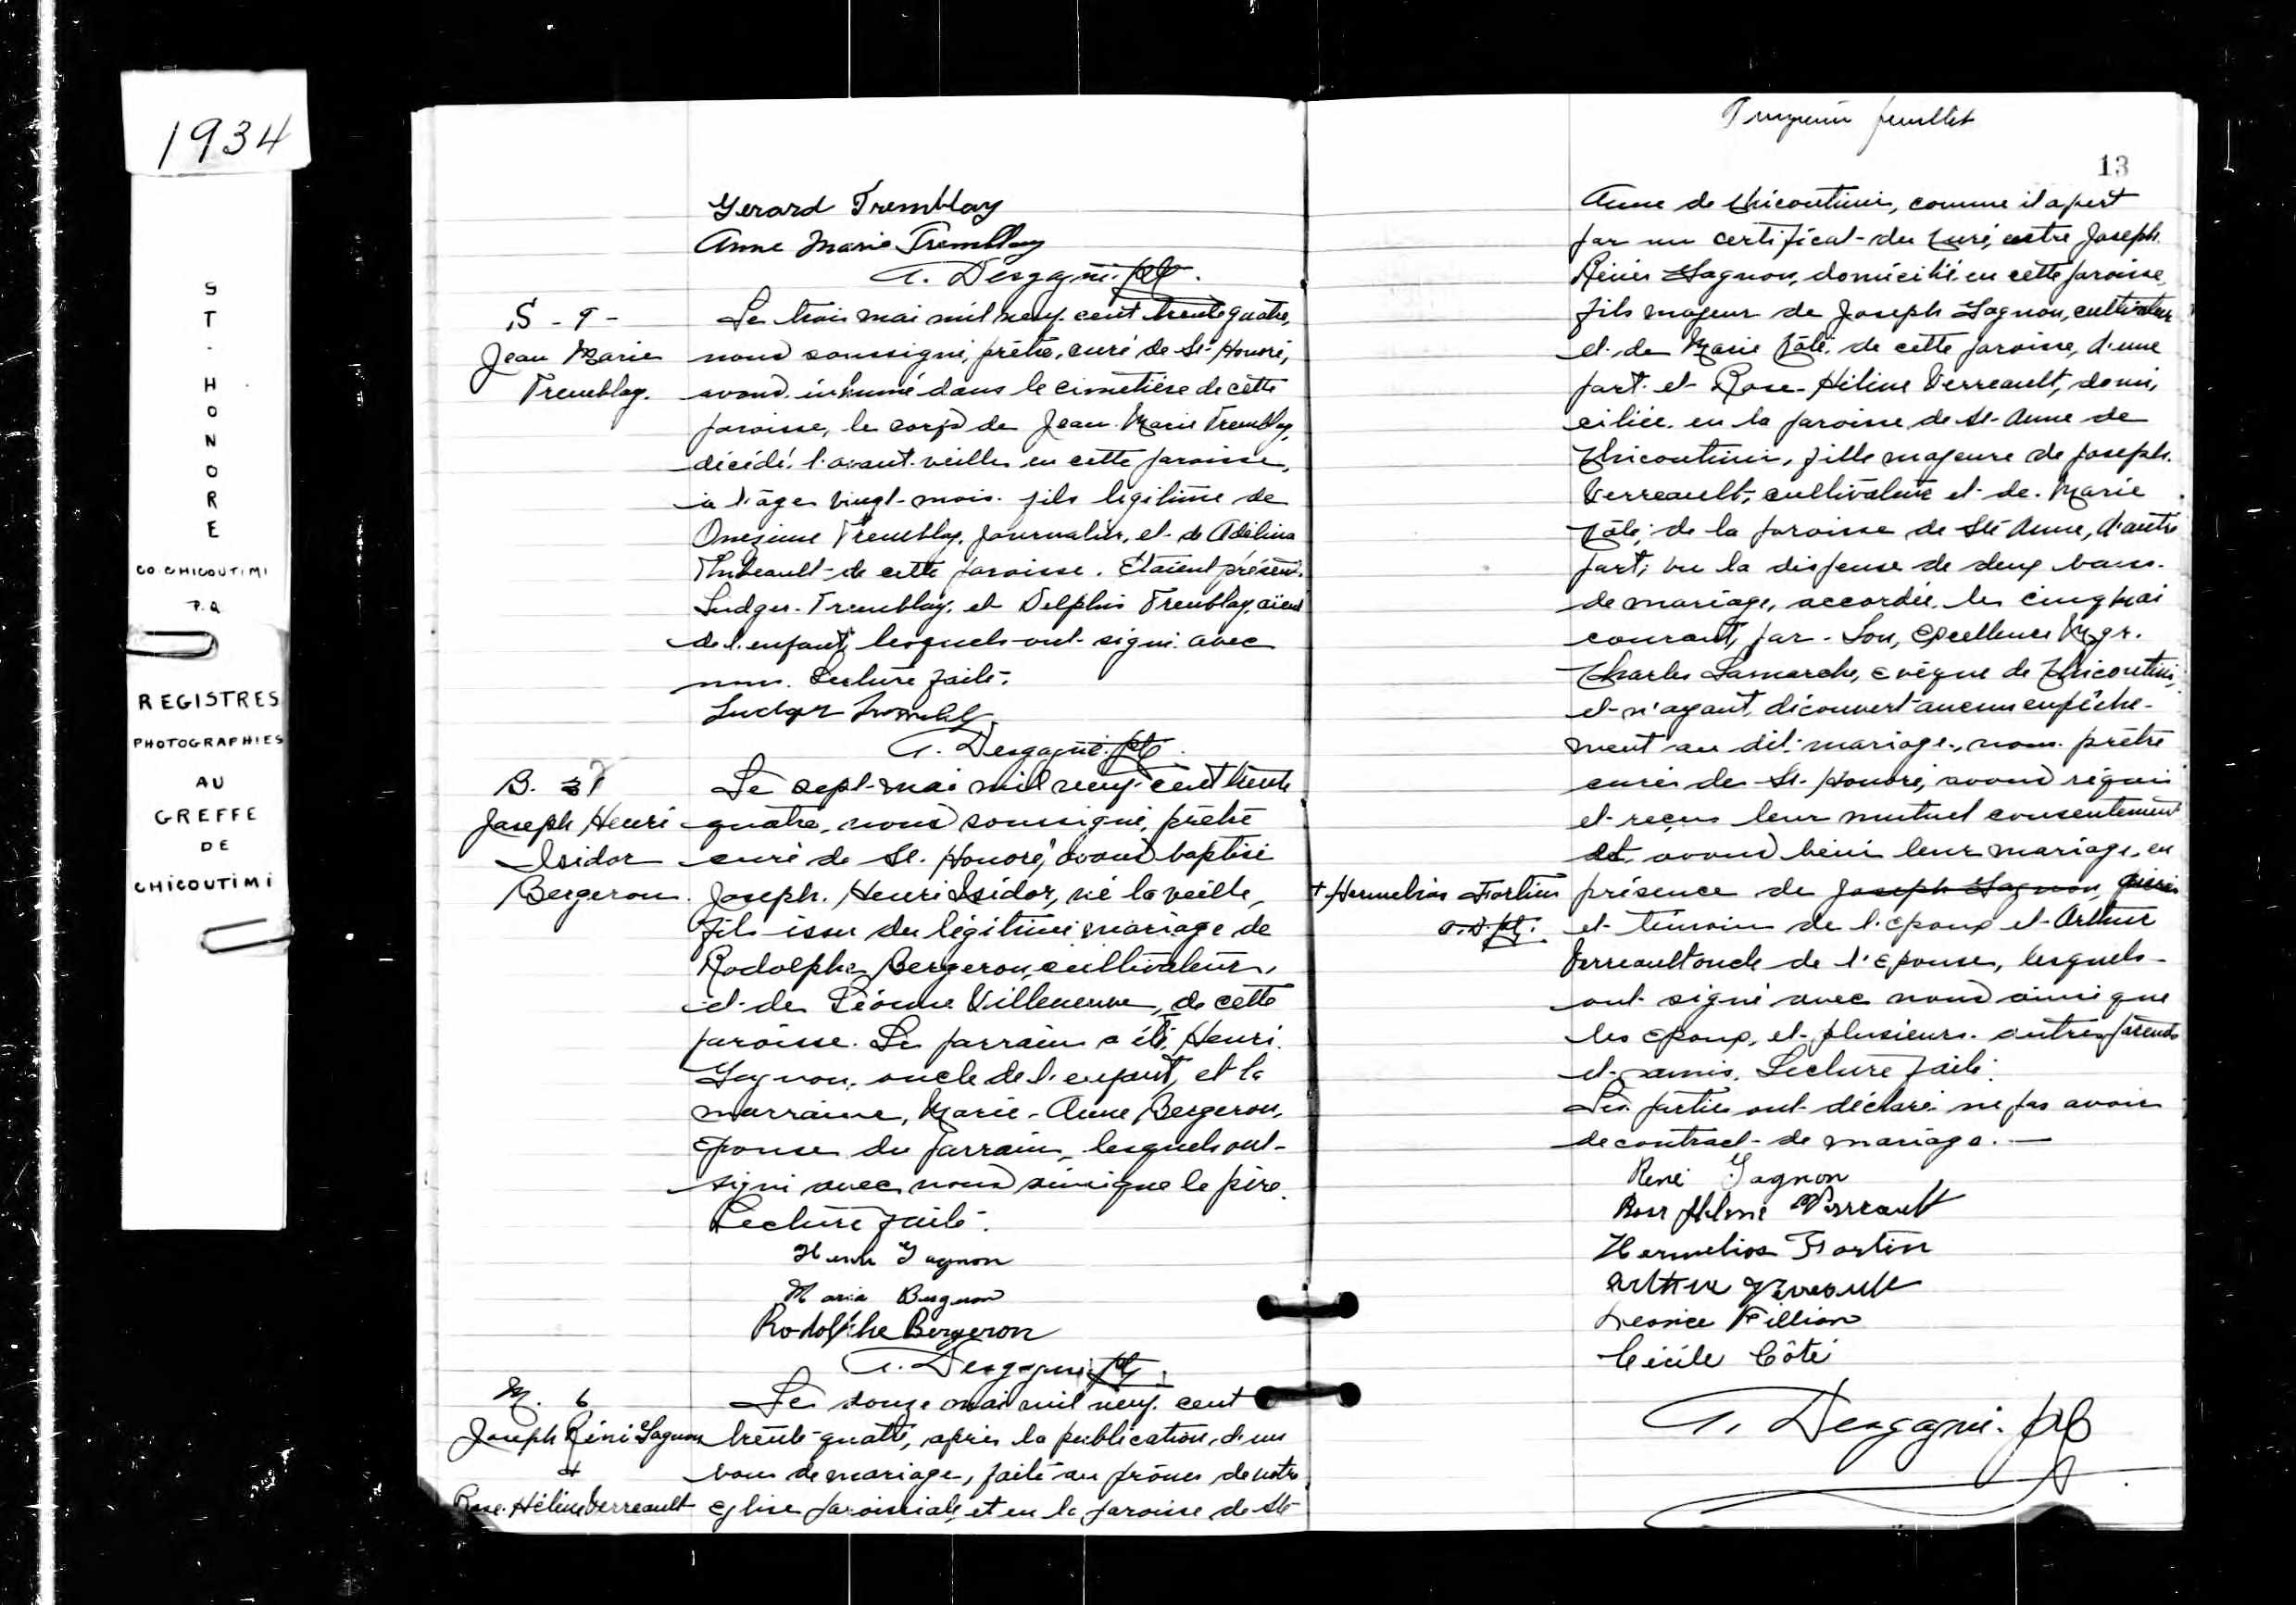 1934
ST-HONORE
CO. CHICOUTIMI
P.Q
REGISTRES
PHOTOGRAPHIES
AU
GREFFE
DE
CHICOUTIMI
Gerard Tremblay
Anne Marie Tremblay
T. Desgagné. ptr.
S - 9 -
Jean Marie
Tremblay.
Le trois mai mil neuf cent trente quatre,
nous soussigné, prêtre, curé de St-Honoré,
avons inhumé dans le cimetière de cette
paroisse, le corps de Jean-Marie Tremblay,
décédé l'avant-veille en cette paroisse,
à l'âge vingt-mois. fils légitime de
Onezime Tremblay, journalier, et de Adélina
Thibeault de cette paroisse. Étaient présents
Ludger Tremblay, et Delphis Tremblay, aieul
de l'enfant, lesquels ont signé avec
nous. Lecture faite.
Ludger Tremblay
T. Desgagné. ptr.
B.
Joseph Henri
Isidor
Bergeron.
Le sept mai mil neuf cent trente
quatre, nous soussigné, prêtre
curé de St. Honoré, avons baptisé
Joseph. Henri Isidor, né la veille,
fils issu du légitime mariage de
Rodolphe Bergeron, cultivateur,
et de Léonne Villeneuve, de cette
paroisse. Le parrain a été Henri
Gagnon, oncle de l'enfant, et la
marraine, Marie-Anne Bergeron,
épouse du parrain, lesquels ont
signé avec nous ainsi que le père.
Lecture faite.
Henri Gagnon
Maria Bergeron
Rodolphe Bergeron
T. Desgagné ptr.
M. 6
Joseph Réné Gagnon
et
Rose-Hélène Verreault
Le douze mai mil neuf cent
trente-quatre, après la publication d'un
banc de mariage, faite au prône de notre
église paroissiale, et en la paroisse de Ste
feuillet
13
Anne de Chicoutimi, comme il apert
par un certificat du Curé, entre Joseph
Réné Gagnon, domicilié en cette paroisse,
fils majeur de Joseph Gagnon, cultivateur
et de Marie Côté, de cette paroisse, d'une
part et Rose-Hélène Verreault, domi,
ciliée en la paroisse de St-Anne de
Chicoutimi, fille majeure de Joseph
Verreault, cultivateur et de Marie
Côté, de la paroisse de Ste Anne, d'autre
part; vu la dispense de deux bancs
de mariage, accordée le cinq mai
courant, par Son, Excellence Mgr.
Charles Lamarche, évêque de Chicoutimi,
et n'ayant découvert aucun empêche-
ment au dit mariage, nous prêtre
curé de St-Honoré, avons requis
et reçu leur mutuel consentement
et avons béni leur mariage, en
+ Hermelias Fortin
présence de Joseph Gagnon,
et témoin de l'époux et Arthur
Verreault oncle de l'Epouse, lesquels
ont signé avec nous ainsi que
les époux, et plusieurs autres parents
et amis. Lecture faite.
Les parties ont déclaré ne pas avoir
de contract de mariage. —
René Gagnon
Rose Hélène Verreault
Hermelias Fortin
Arthur Verreault
Leonice Fillion
Cécile Côté
T. Desgagné. ptr